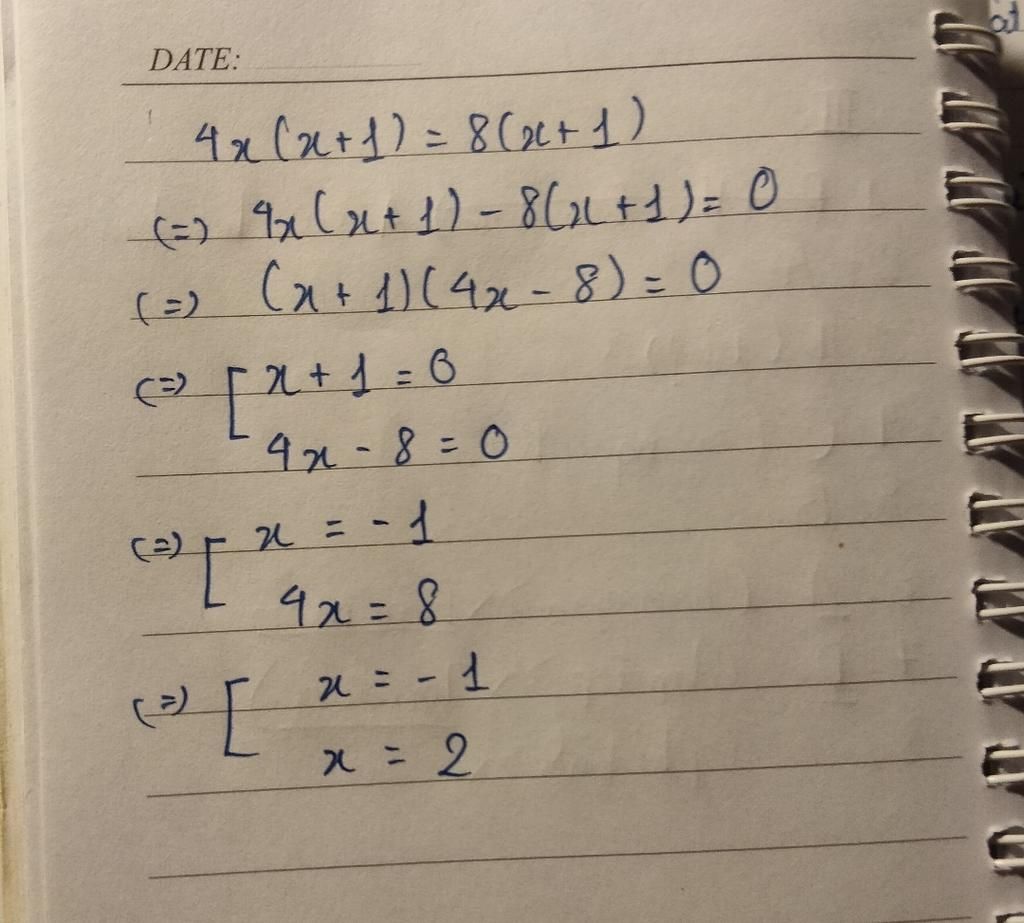 DATE:
4x(x+1) = 8(x+1)
(=) 4x(x+1) - 8(x+1) = 0
(=) (x+1)(4x - 8) = 0
(=) [ x + 1 = 0
4x - 8 = 0
(=) [ x = -1
4x = 8
(=) [ x = -1
x = 2